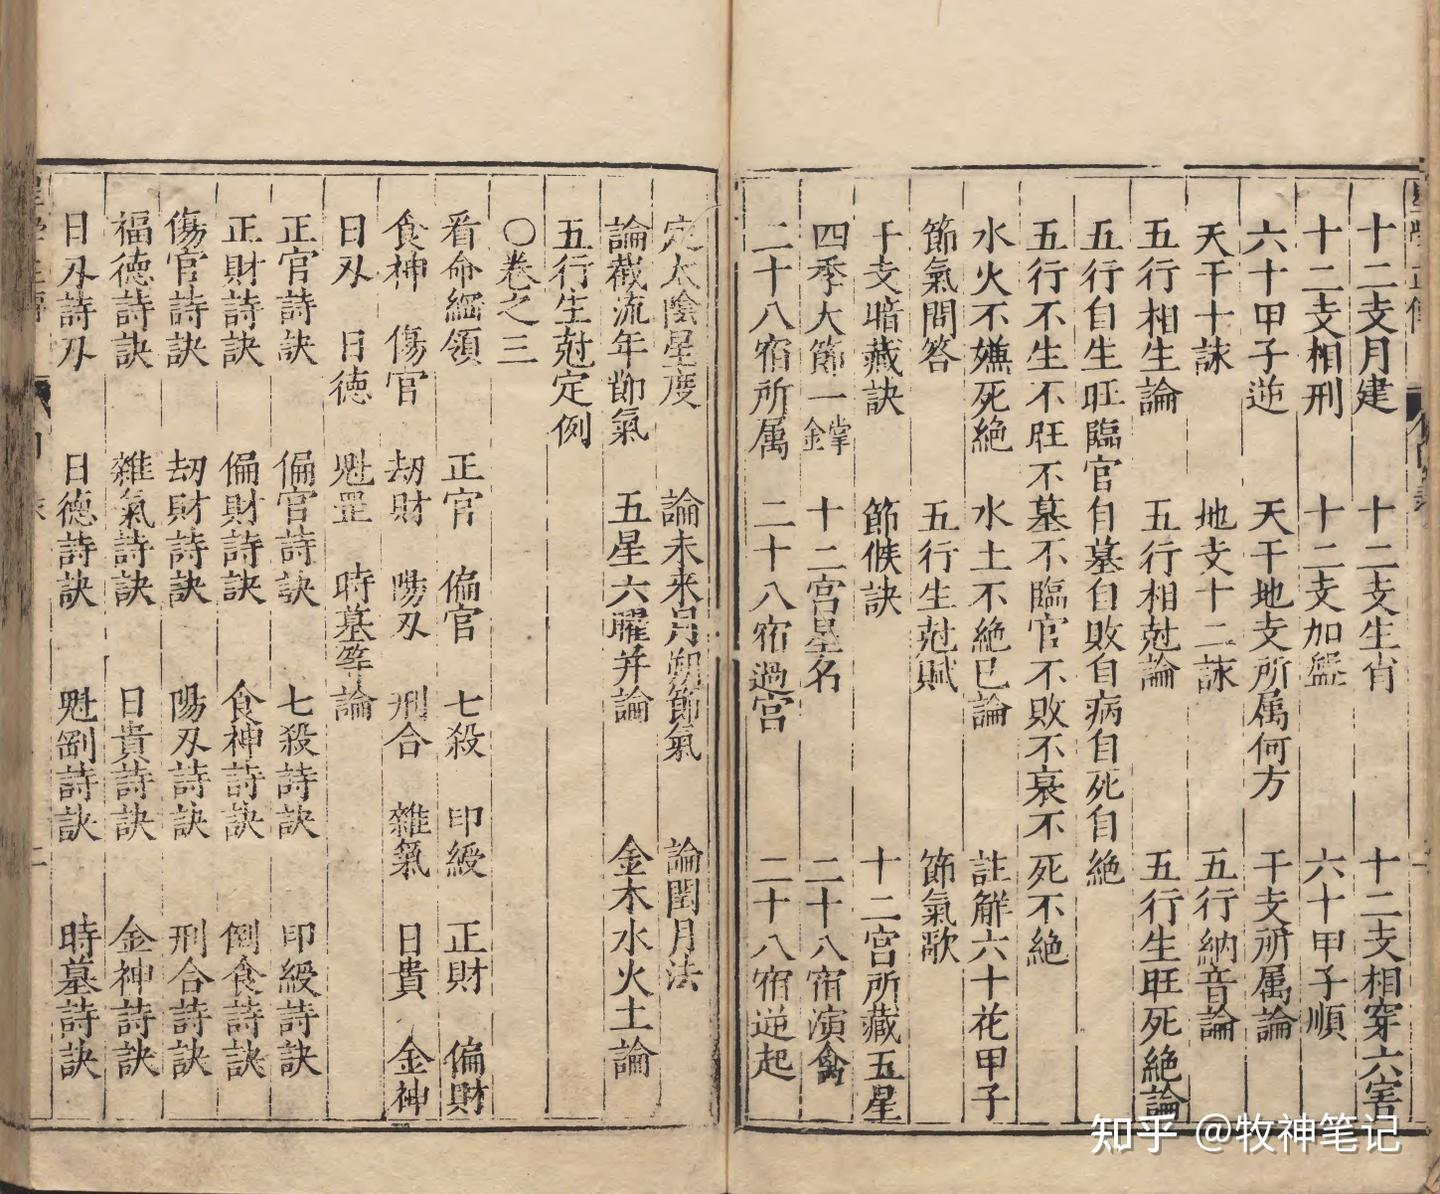 十二支月建 十二支生肖 十二支相穿六害
十二支相刑 十二支加盤 六十甲子順
六十甲子逆 天干地支所属何方 干支所属論
天干十訣 地支十二訣 五行納音論
五行相生論 五行相尅論 五行生旺死絶論
五行自生自旺臨官自墓自敗自病自死自絶
五行不生不旺不墓不臨官不敗不衰不死不絶
水火不嫌死絶 水土不絶巳論 註觧六十花甲子
節氣問答 五行生尅賦 節氣歌
干支暗藏訣 節候訣 十二宮所藏五星
四季大節一掌金 十二宮星名 二十八宿演禽
二十八宿所属 二十八宿過宮 二十八宿逆起
定太陰星度 論未来月朔節氣 論閏月法
論截流年節氣 五星六曜并論 金木水火土論
五行生尅定例
○卷之三
看命綱領 正官 偏官 七殺 印綬 正財 偏財
食神 傷官 刼財 陽刄 刑合 雜氣 日貴 金神
日刄 日德 魁罡 時墓等論
正官詩訣 偏官詩訣 七殺詩訣 印綬詩訣
正財詩訣 偏財詩訣 食神詩訣 倒食詩訣
傷官詩訣 刼財詩訣 陽刄詩訣 刑合詩訣
福德詩訣 雜氣詩訣 日貴詩訣 金神詩訣
日刄詩刄 日德詩訣 魁罡詩訣 時墓詩訣
知乎 @牧神笔记